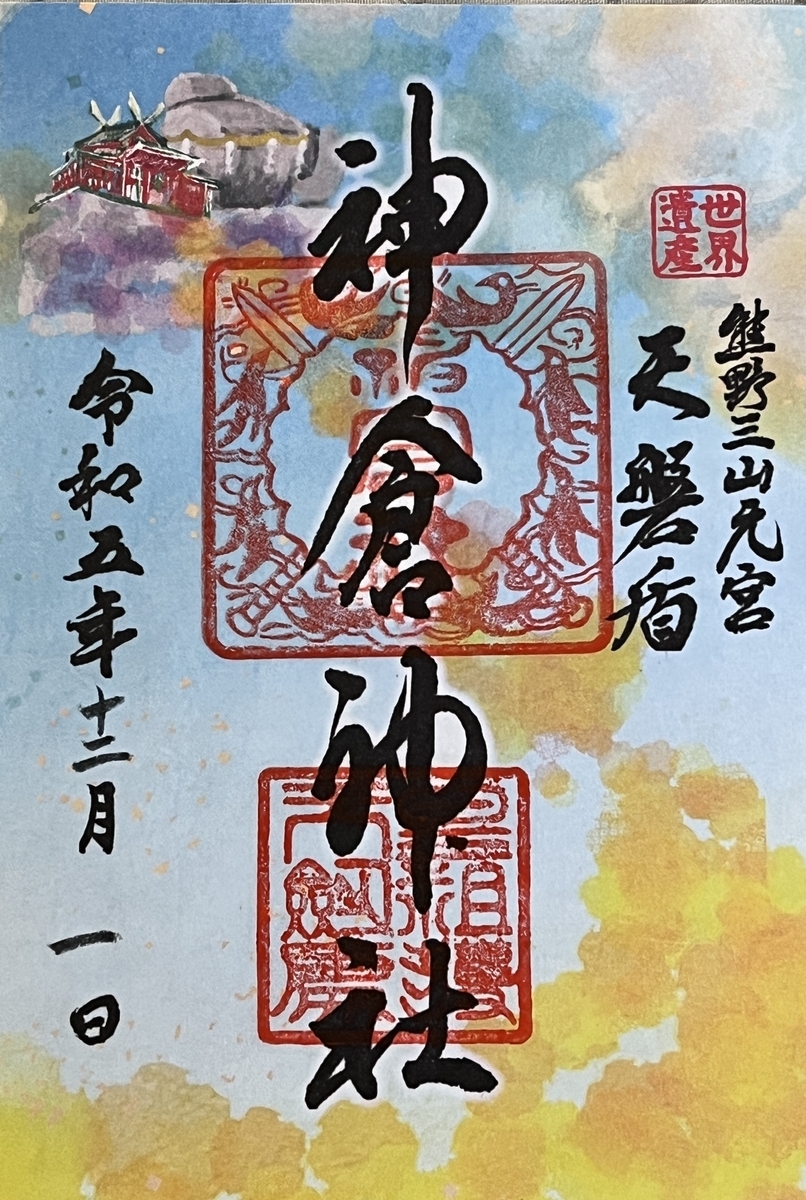 世界
遺産
熊野三山元宮
天磐盾
神倉神社
令和五年十二月一日